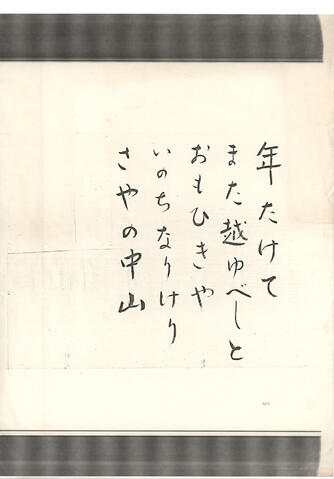 年たけて
また越ゆべしと
おもひきや
いのちなりけり
さやの中山